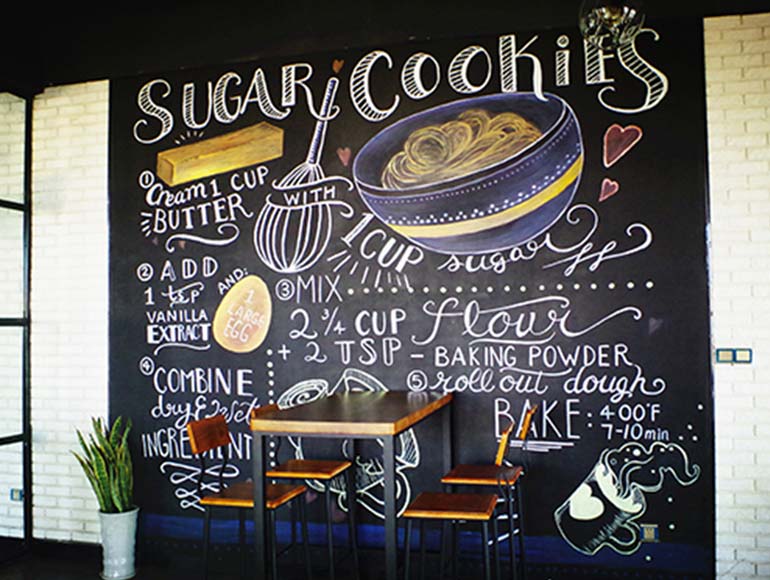 SUGAR COOKIES
① Cream 1 CUP
BUTTER
WITH
1 CUP sugar
② ADD
1 tsp
VANILLA
EXTRACT
AND:
1
LARGE
EGG
③ MIX
2 3/4 CUP flour
+ 2 TSP - BAKING POWDER
④
COMBINE
dry & wet
INGREDIENT
⑤ roll out dough
BAKE: 400°F
7-10 min